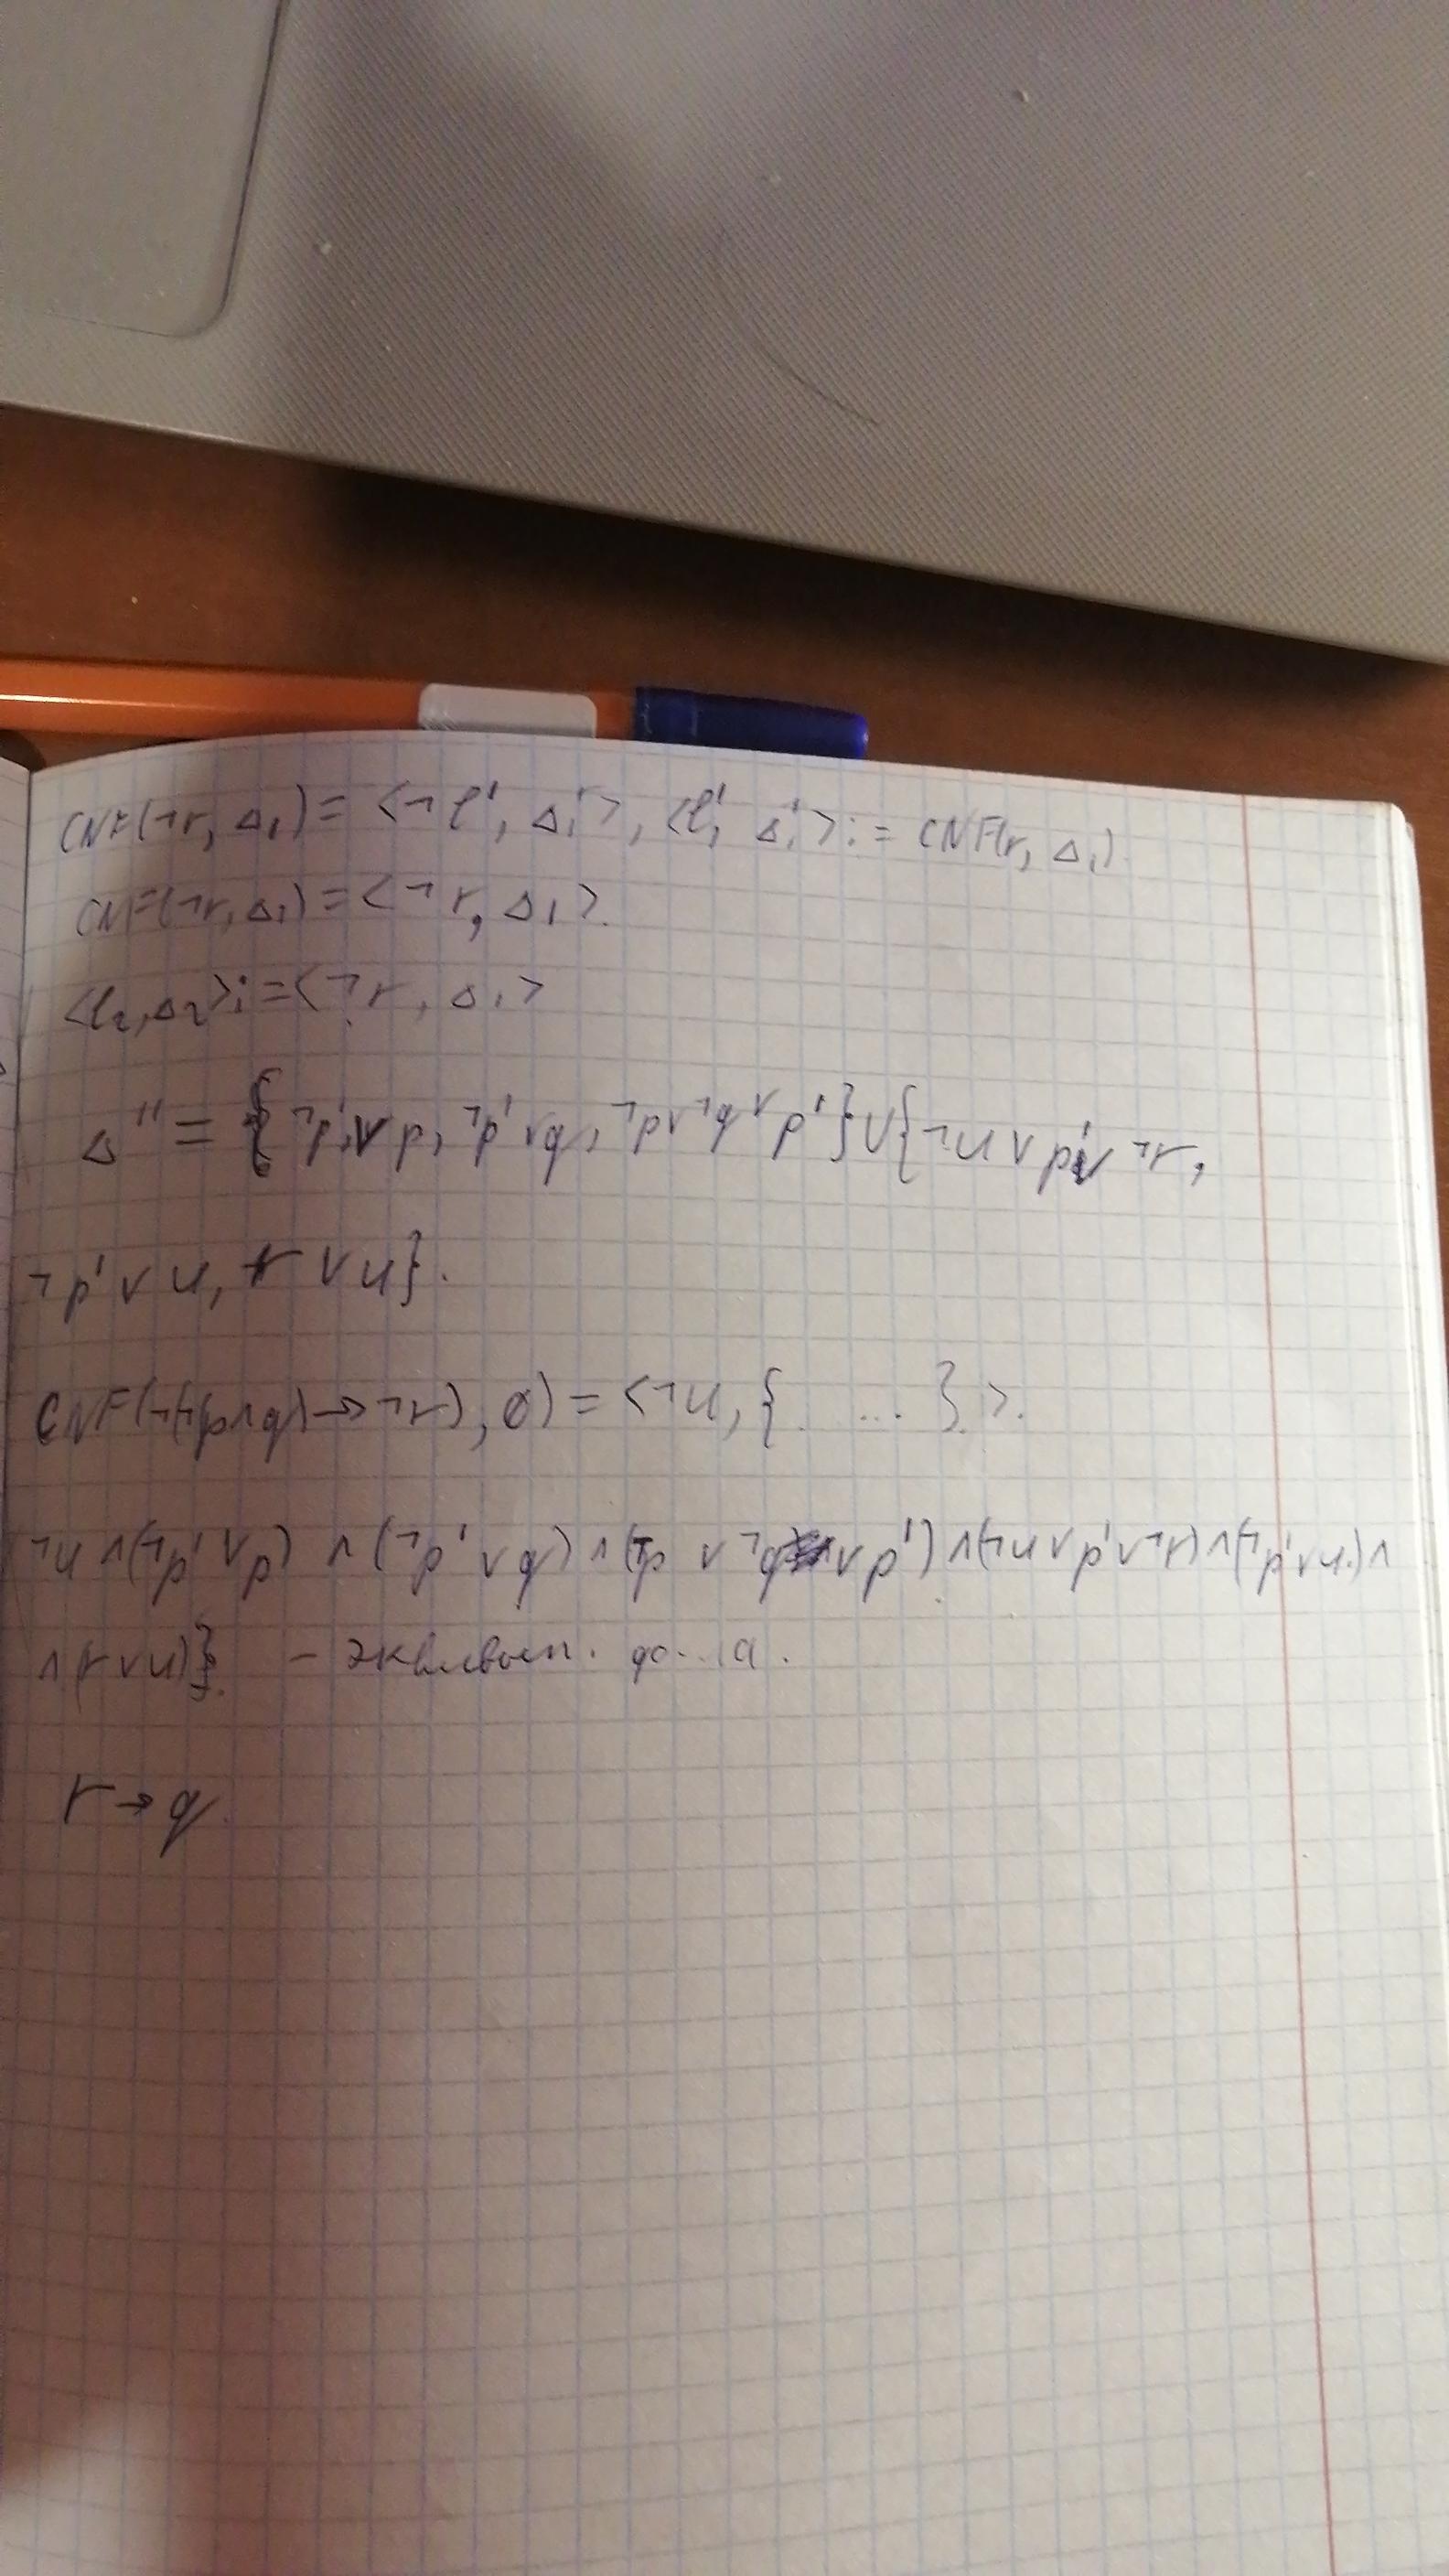 CNF(¬r, Δ₁) = <¬l', Δ₁'>, <l', Δ₁'> := CNF(r, Δ₁)
CNF(¬r, Δ₁) = <¬r, Δ₁>.
<l₂, Δ₂> := <¬r, Δ₁>
Δ'' = {¬p' ∨ p, ¬p' ∨ q, ¬p ∨ ¬q ∨ p'} ∪ {¬u ∨ p' ∨ ¬r,
¬p' ∨ u, r ∨ u}.
CNF(¬((p ∧ q) → ¬r), ∅) = <¬u, { ... }>.
¬u ∧ (¬p' ∨ p) ∧ (¬p' ∨ q) ∧ (¬p ∨ ¬q ∨ p') ∧ (¬u ∨ p' ∨ ¬r) ∧ (¬p' ∨ u) ∧
∧ (r ∨ u)}. –
r → q